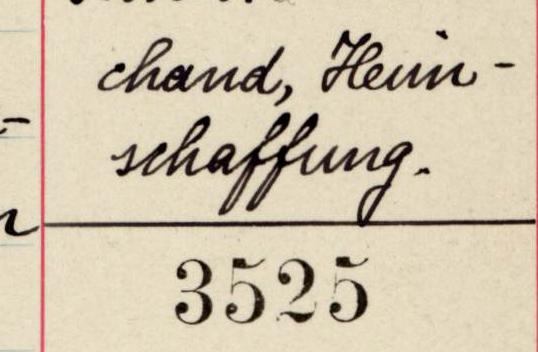 chand, Heim-
schaffung.
3525